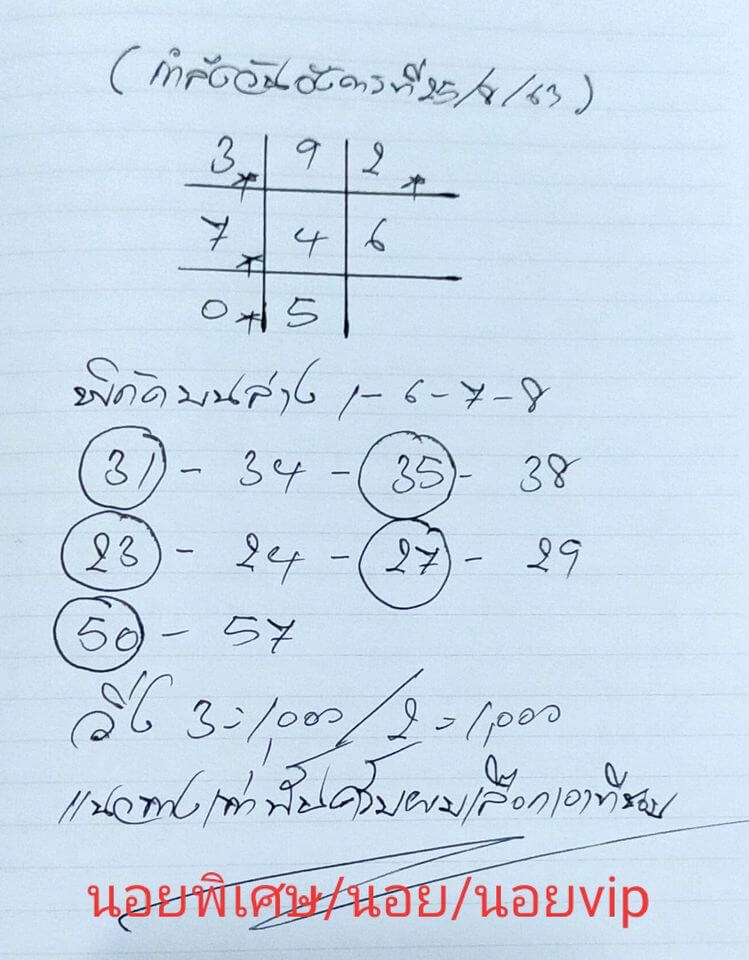 (กำลังวันอังคารที่ 25/8/63)
3* 9 2*
7* 4 6
0* 5
พิกัดบนล่าง 1-6-7-8
31 - 34 - 35 - 38
23 - 24 - 27 - 29
50 - 57
วิ่ง 3=1,000/2=1,000
แนวทางเท่านั้นครับผมเลือกเอาที่ชอบ
นอยพิเศษ/นอย/นอยvip